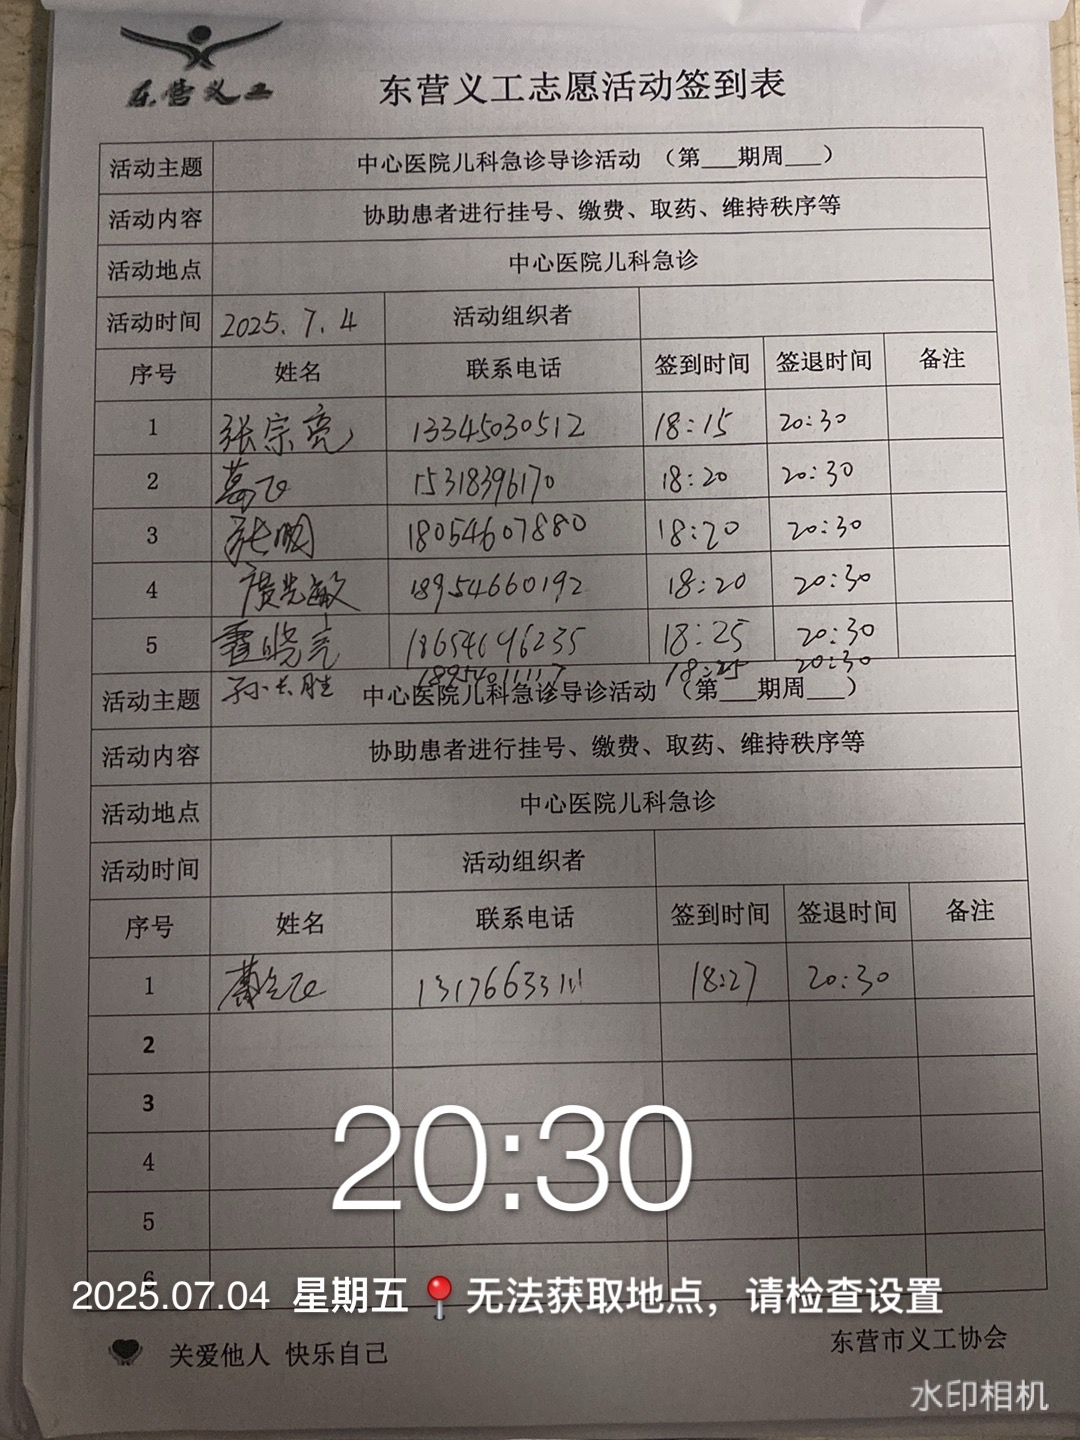 东营义工
东营义工志愿活动签到表
活动主题 中心医院儿科急诊导诊活动 （第___期周___）
活动内容 协助患者进行挂号、缴费、取药、维持秩序等
活动地点 中心医院儿科急诊
活动时间 2025.7.4 活动组织者
序号 姓名 联系电话 签到时间 签退时间 备注
1 张宗亮 13345030512 18:15 20:30
2 葛飞 15318396170 18:20 20:30
3 张明 18054607880 18:20 20:30
4 光敏 18954660192 18:20 20:30
5 霍晓亮 18654696235 18:25 20:30
孙长胜 18:25 20:30
活动主题 中心医院儿科急诊导诊活动 （第___期周___）
活动内容 协助患者进行挂号、缴费、取药、维持秩序等
活动地点 中心医院儿科急诊
活动时间 活动组织者
序号 姓名 联系电话 签到时间 签退时间 备注
1 13176633111 18:27 20:30
2
3
20:30
4
5
6
2025.07.04 星期五 📍无法获取地点，请检查设置
关爱他人 快乐自己
东营市义工协会
水印相机